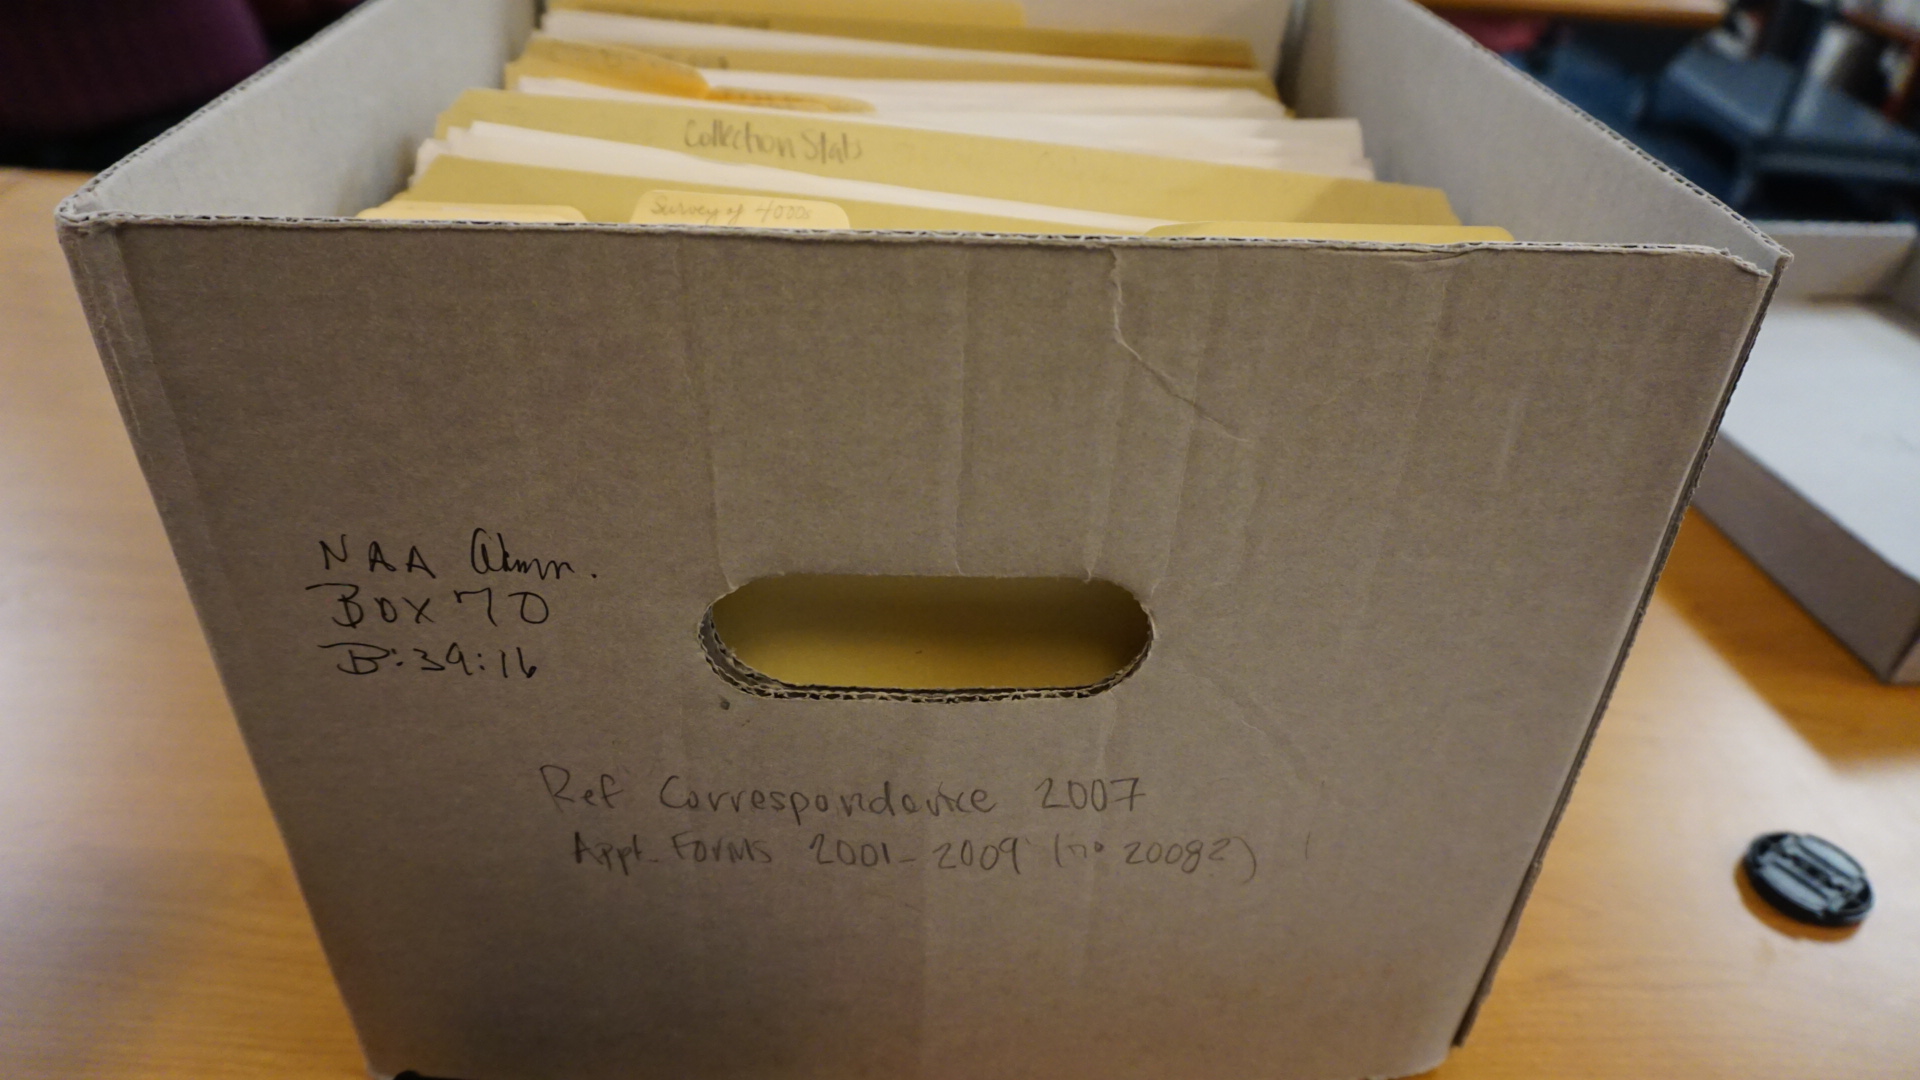 Collection Stats
Survey of 4000s
NAA Admn.
Box 70
B:39:16
Ref Correspondence 2007
Appt. Forms 2001-2009 (no 2008?)